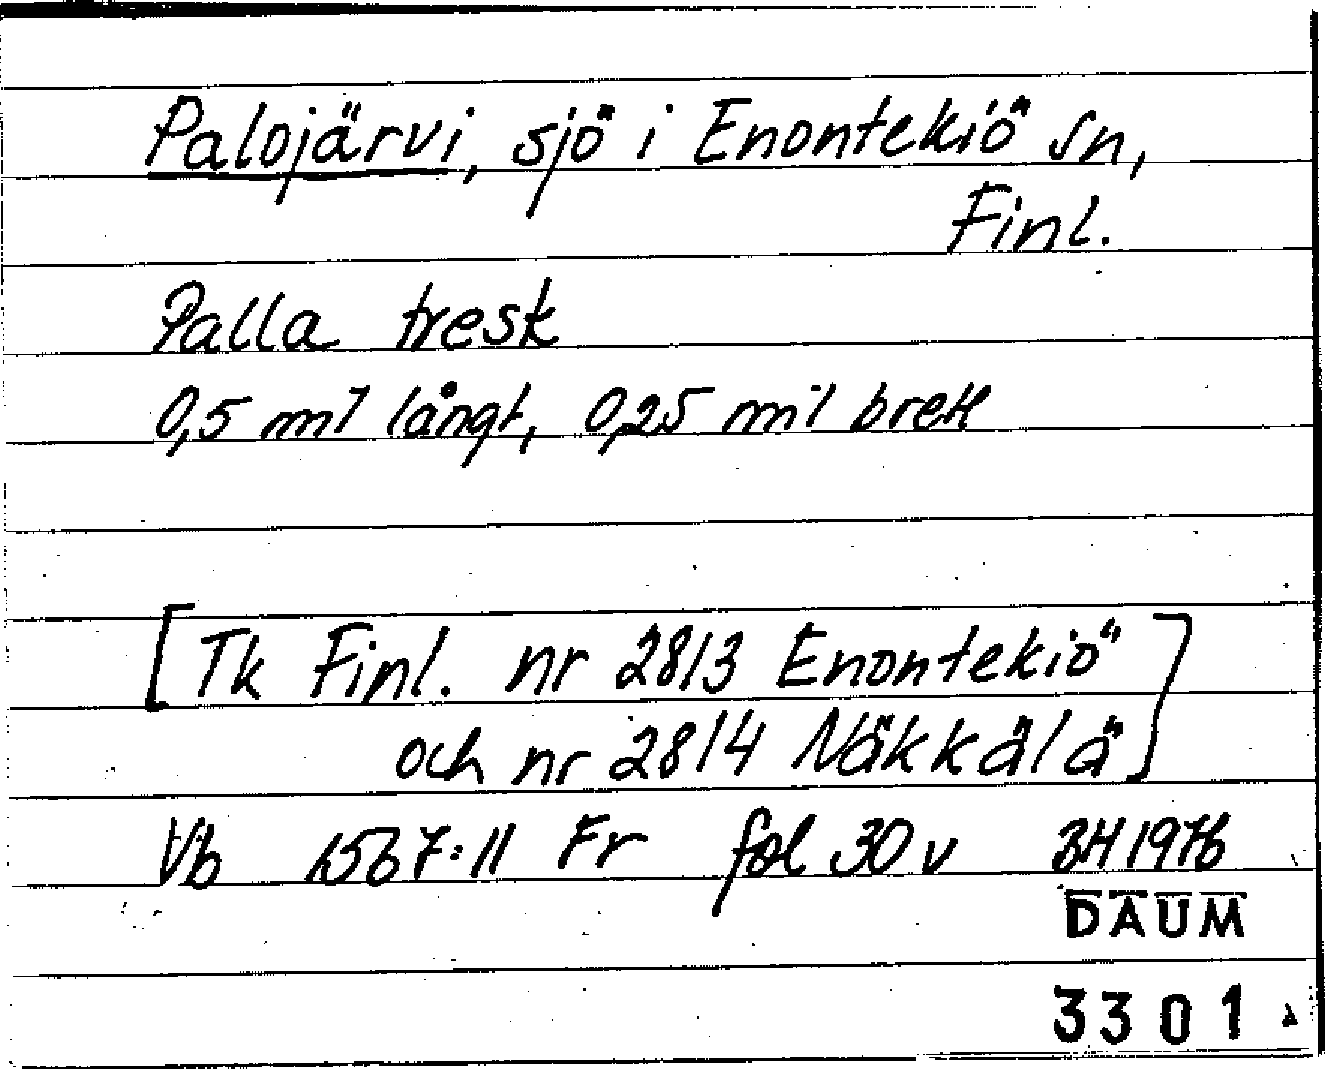 Palojärvi, sjö i Enontekiö sn,
Finl.
Palla tresk
0,5 mil långt, 0,25 mil brett
[Tk Finl. nr 2813 Enontekiö
och nr 2814 Näkkälä]
Vb 1567:11 Fr fol 30 v BH 1976
DAUM
3301